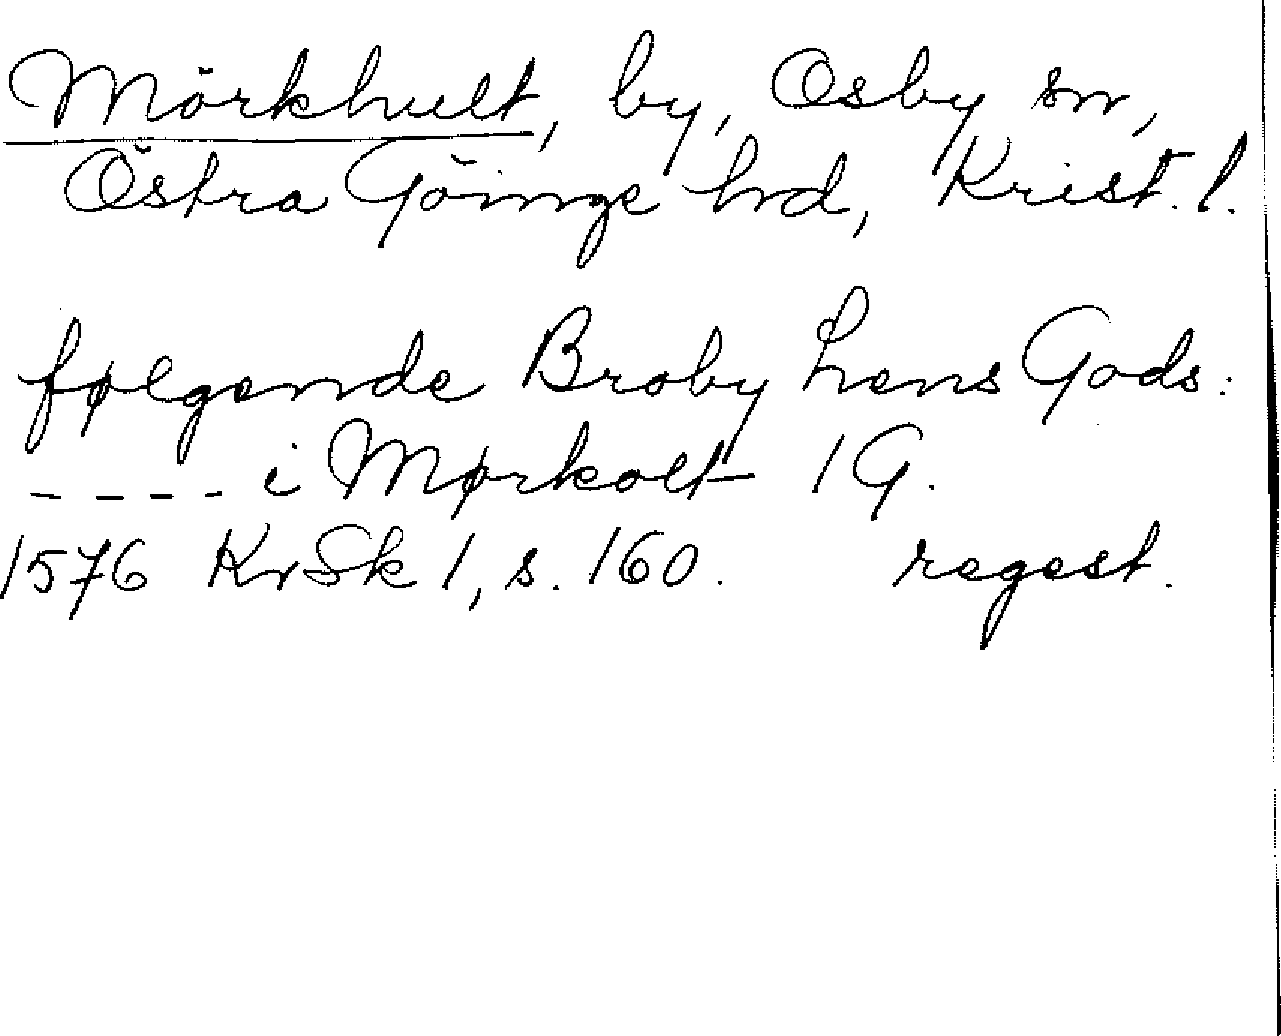 Mörkhult, by, Osby sn,
Östra Göinge hrd, Krist. l.
følgende Broby Lens Gods:
- - - - i Mørkolt 1 G.
1576 KrSk 1, s. 160. regest.